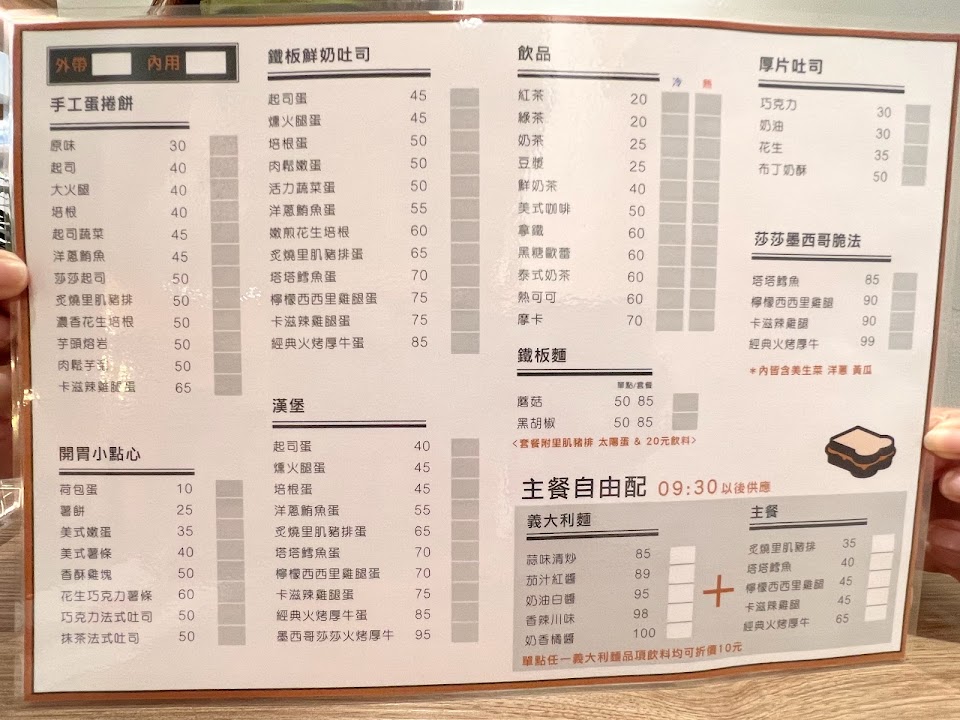 外帶 內用
手工蛋捲餅
原味 30
起司 40
大火腿 40
培根 40
起司蔬菜 45
洋蔥鮪魚 45
莎莎起司 50
炙燒里肌豬排 50
濃香花生培根 50
芋頭熔岩 50
肉鬆芋泥 50
卡滋辣雞腿蛋 65
開胃小點心
荷包蛋 10
薯餅 25
美式嫩蛋 35
美式薯條 40
香酥雞塊 50
花生巧克力薯條 60
巧克力法式吐司 50
抹茶法式吐司 50
鐵板鮮奶吐司
起司蛋 45
燻火腿蛋 45
培根蛋 50
肉鬆嫩蛋 50
活力蔬菜蛋 50
洋蔥鮪魚蛋 55
嫩煎花生培根 60
炙燒里肌豬排蛋 65
塔塔鱈魚蛋 70
檸檬西西里雞腿蛋 75
卡滋辣雞腿蛋 75
經典火烤厚牛蛋 85
漢堡
起司蛋 40
燻火腿蛋 45
培根蛋 45
洋蔥鮪魚蛋 55
炙燒里肌豬排蛋 65
塔塔鱈魚蛋 70
檸檬西西里雞腿蛋 70
卡滋辣雞腿蛋 75
經典火烤厚牛蛋 85
墨西哥莎莎火烤厚牛 95
飲品
冷 熱
紅茶 20
綠茶 20
奶茶 25
豆漿 25
鮮奶茶 40
美式咖啡 50
拿鐵 60
黑糖歐蕾 60
泰式奶茶 60
熱可可 60
摩卡 70
鐵板麵
單點/套餐
蘑菇 50 85
黑胡椒 50 85
<套餐附里肌豬排 太陽蛋 & 20元飲料>
厚片吐司
巧克力 30
奶油 30
花生 35
布丁奶酥 50
莎莎墨西哥脆法
塔塔鱈魚 85
檸檬西西里雞腿 90
卡滋辣雞腿 90
經典火烤厚牛 99
*內皆含美生菜 洋蔥 黃瓜
主餐自由配 09:30以後供應
義大利麵
蒜味清炒 85
茄汁紅醬 89
奶油白醬 95
香辣川味 98
奶香橘醬 100
+
主餐
炙燒里肌豬排 35
塔塔鱈魚 40
檸檬西西里雞腿 45
卡滋辣雞腿 45
經典火烤厚牛 65
單點任一義大利麵品項飲料均可折價10元